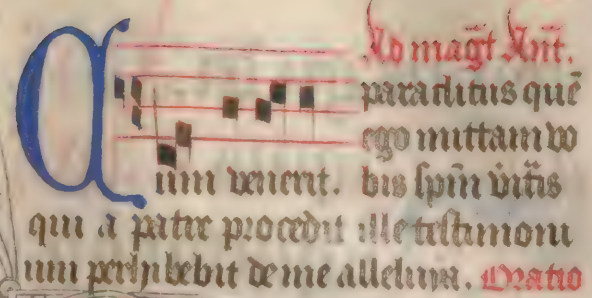 Ad mag̃t Añt.
Cum venerit.
paraclitus quē
ego mittam vo
bis spm̄ vītis
qui a patre procedit ille testimoni
um perhibebit de me alleluya. Oratio